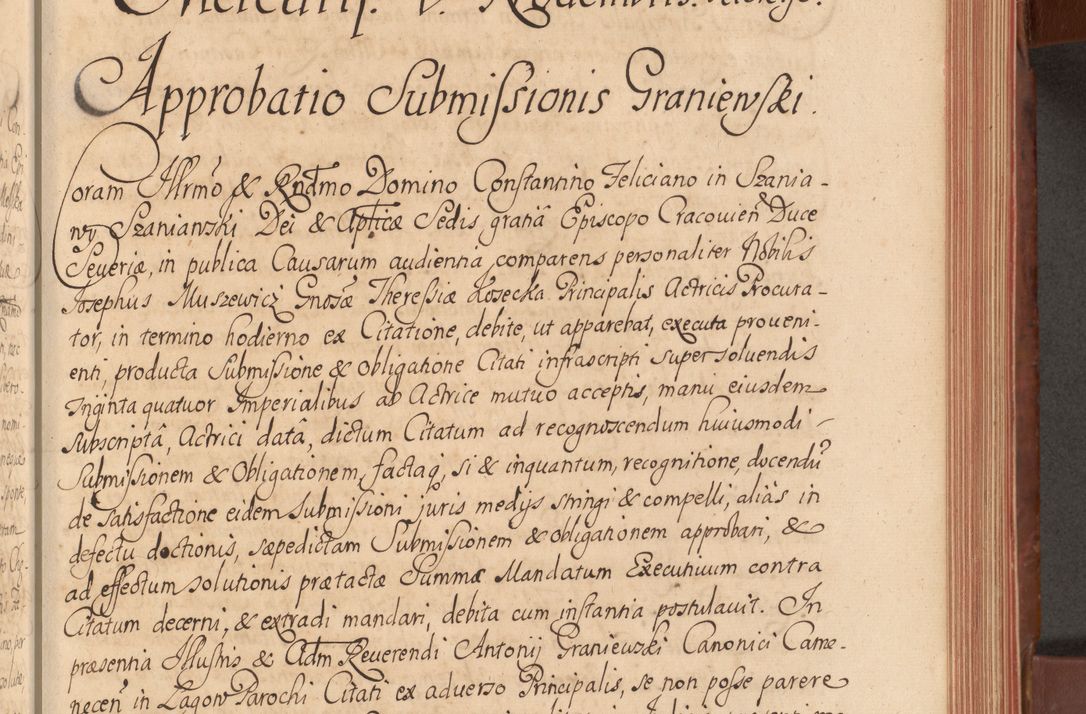 Approbatio Submissionis Graniewski.
Coram Illrmo & Rndmo Domino Constantino Feliciano in Szania-
wy Szaniawski Dei & Aplicæ Sedis gratiâ Episcopo Cracovien Duce
Severiæ, in publica Causarum audientia comparens personaliter Nobilis
Josephus Muszewicz Gnosæ Theressiæ Kosecka Principalis Actricis Procura-
tor, in termino hodierno ex Citatione, debite, ut apparebat, executa proveni-
enti, producta Submissione & obligatione Citati infrascripti super solvendis
Triginta quatuor Imperialibus ab Actrice mutuo acceptis, manu eiusdem
subscriptâ, Actrici datâ, dictum Citatum ad recognoscendum huiusmodi
Submissionem & Obligationem, factaq, si & inquantum, recognitione, docendū
de satisfactione eidem submissioni juris medijs stringi & compelli, aliàs in
defectu doctionis, sæpedictam Submissionem & obligationem approbari, &
ad effectum solutionis prætactæ Summæ Mandatum Executivum contra
Citatum decerni, & extradi mandari, debita cum instantia postulavit. In
præsentia Illustris & Adm Reverendi Antonij Graniewski Canonici Came-
necen in Lagow Parochi Citati ex adverso Principalis, se non posse parere